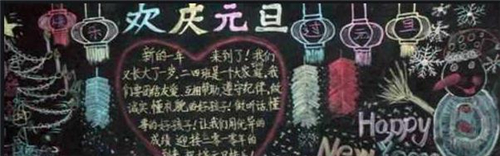 欢庆元旦
新的一年 来到了！我们
又长大了一岁，二四班是一个大家庭，我
们要团结友爱，互相帮助，遵守纪律，做
诚实懂礼貌的好孩子！做听话懂
事的好孩子！让我们用优异的
成绩 迎接二零一零年的
Happy
New